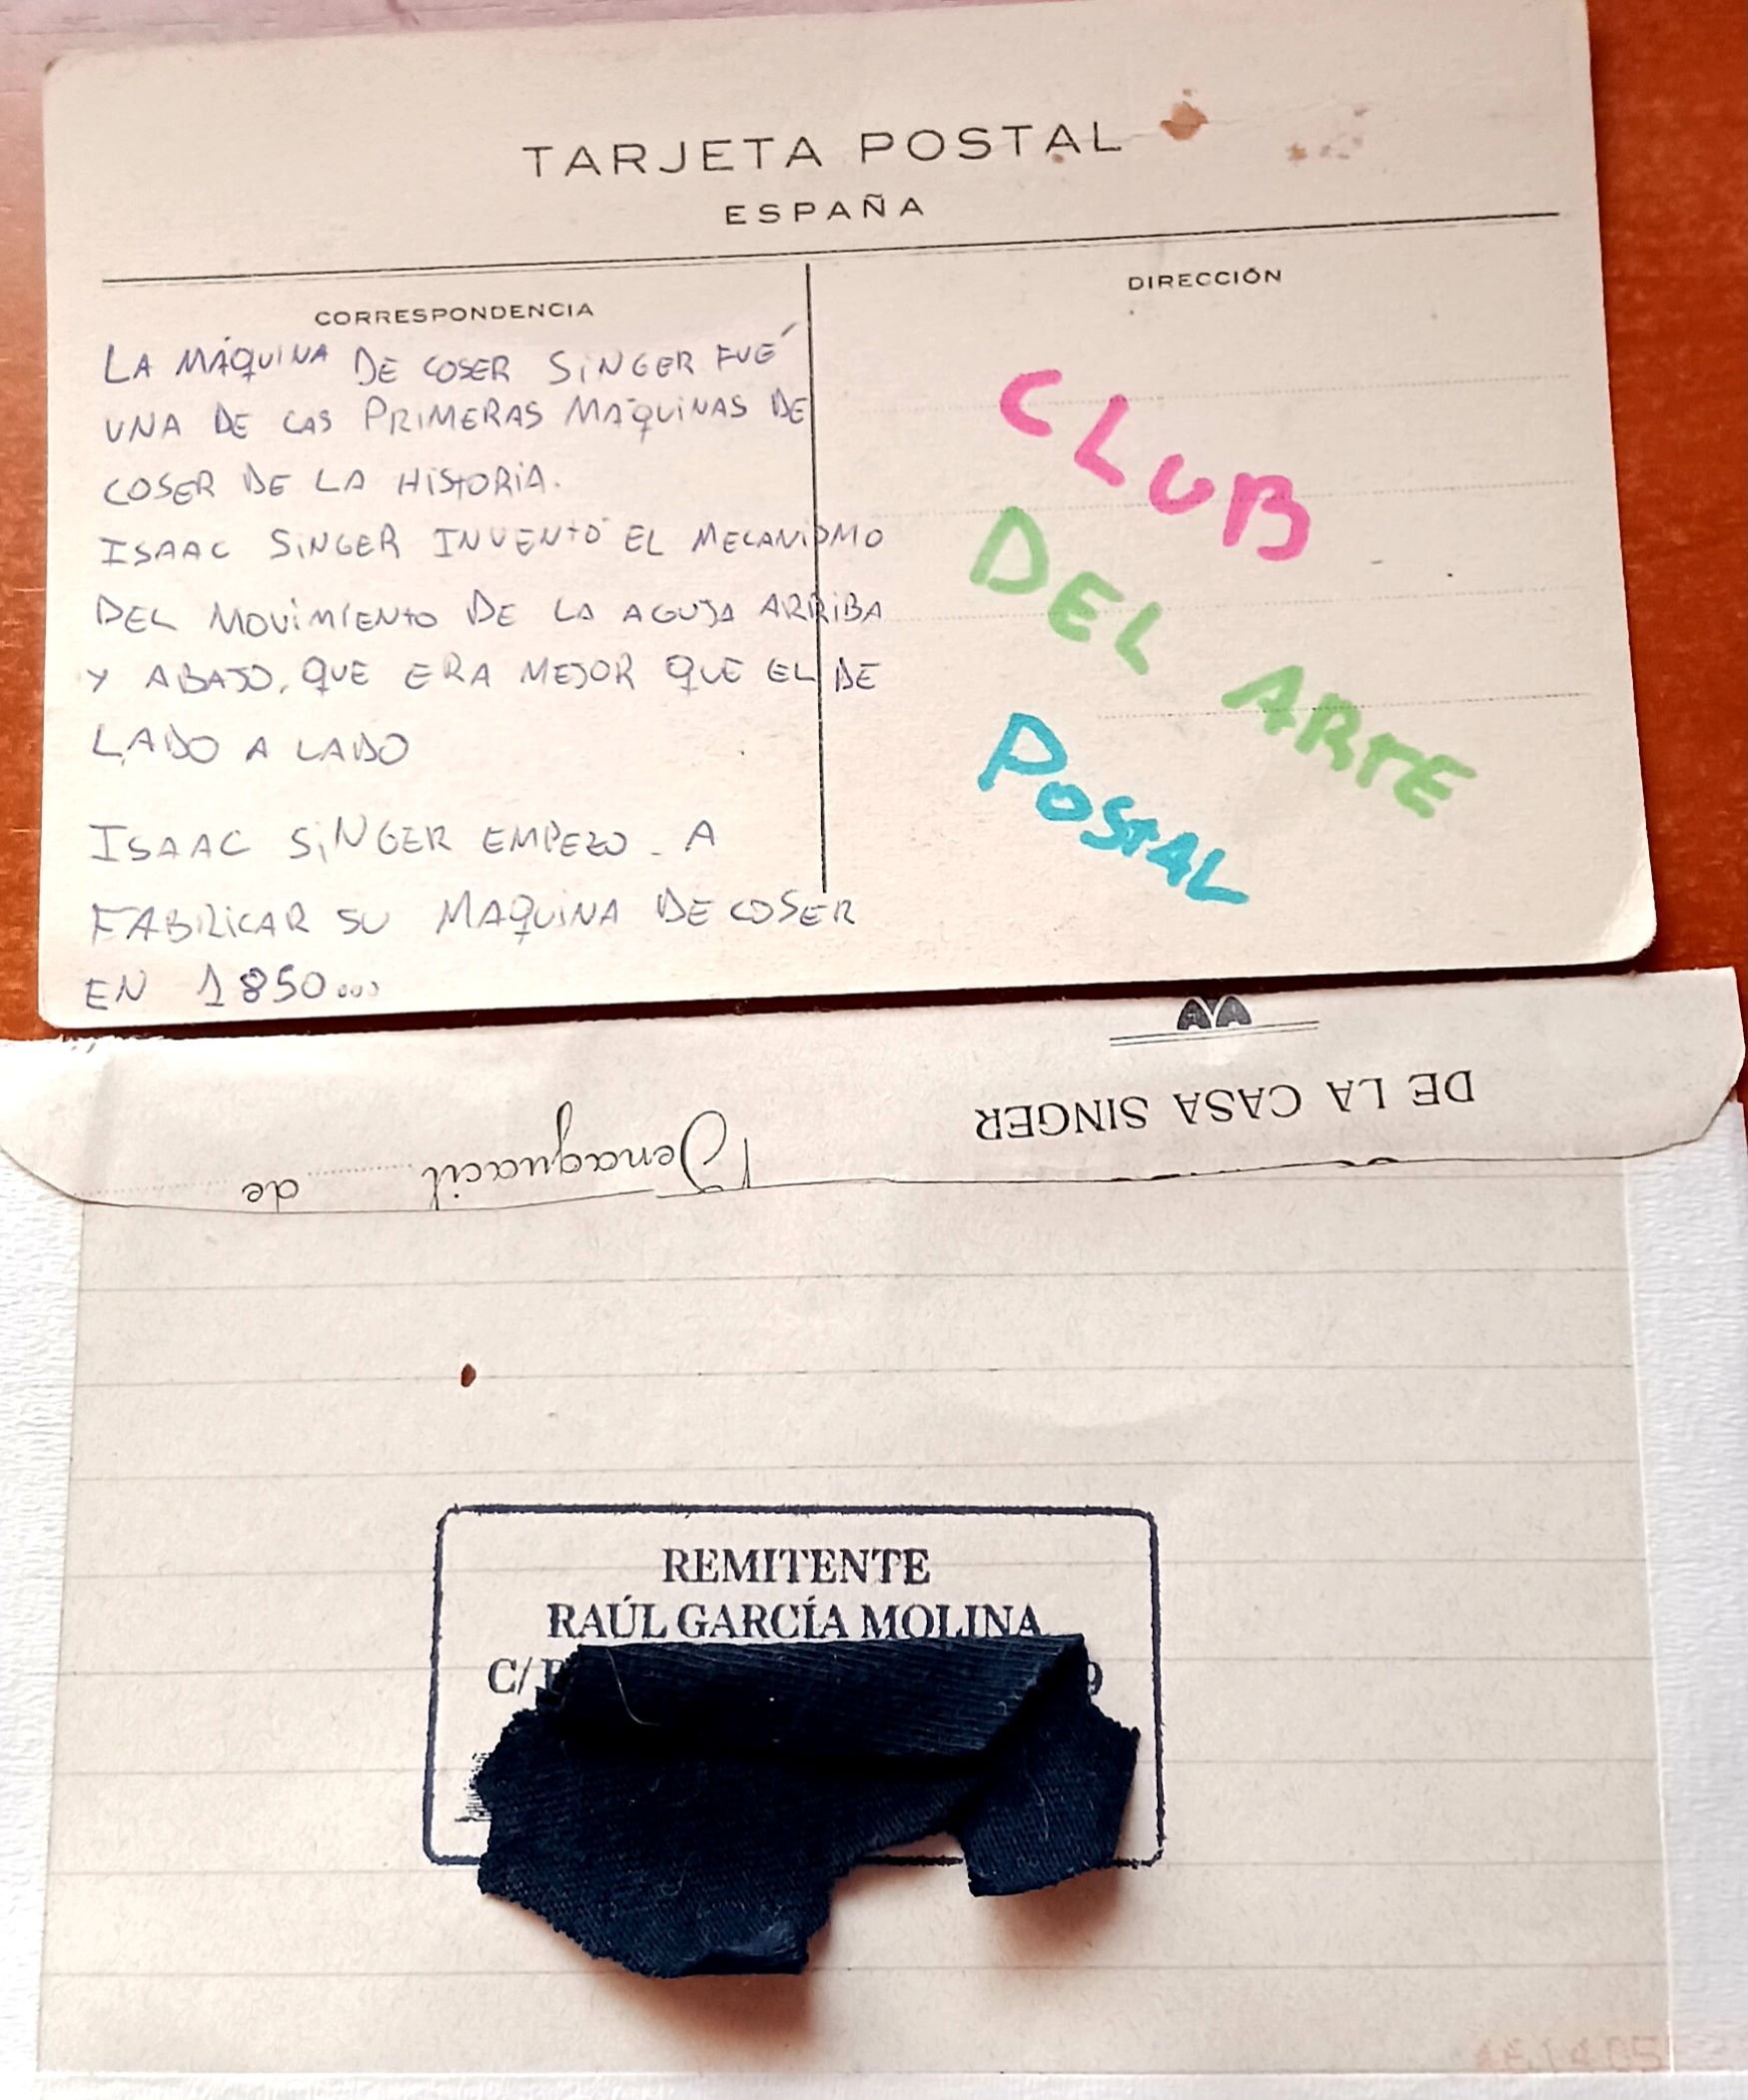 TARJETA POSTAL
ESPAÑA
CORRESPONDENCIA
LA MÁQUINA DE COSER SINGER FUÉ
UNA DE LAS PRIMERAS MÁQUINAS DE
COSER DE LA HISTORIA.
ISAAC SINGER INVENTÓ EL MECANISMO
DEL MOVIMIENTO DE LA AGUJA ARRIBA
Y ABAJO, QUE ERA MEJOR QUE EL DE
LADO A LADO
ISAAC SINGER EMPEZO A
FABRICAR SU MAQUINA DE COSER
EN 1850...
DIRECCIÓN
CLUB
DEL ARTE
POSTAL
DE LA CASA SINGER
Benaguacil de
REMITENTE
RAÚL GARCÍA MOLINA
C/